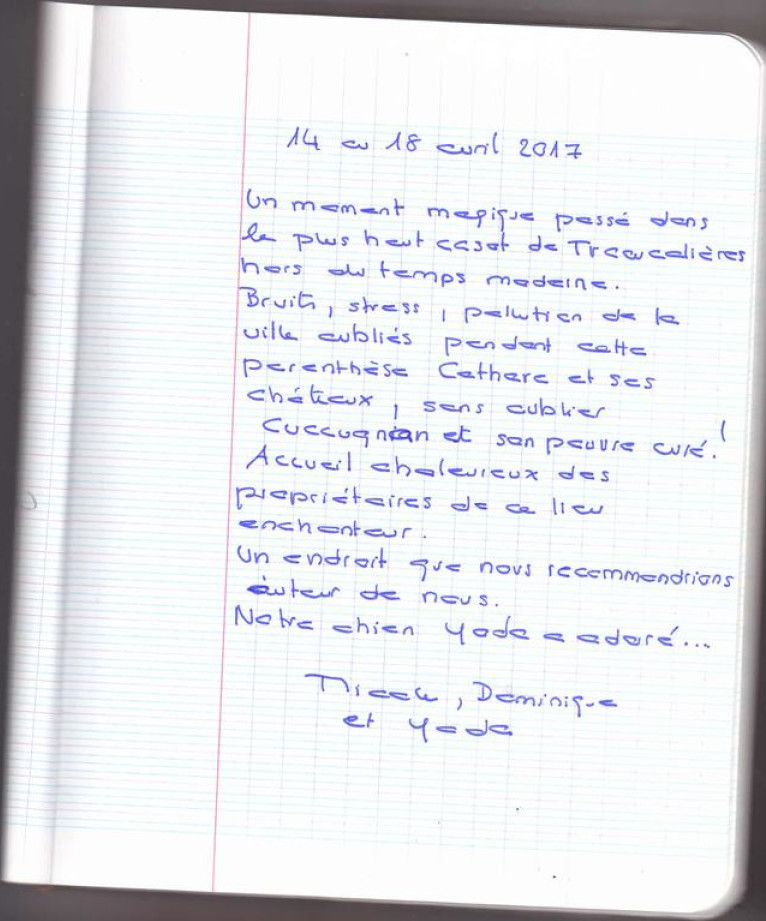 14 au 18 avril 2017
Un moment magique passé dans
le plus haut casot de Trevucalières
hors du temps moderne.
Bruits, stress, pollution de la
ville oubliés pendant cette
parenthèse Cathare et ses
châteaux, sans oublier
Cucugnan et son pauvre curé !
Accueil chaleureux des
propriétaires de ce lieu
enchanteur.
Un endroit que nous recommandrions
autour de nous.
Notre chien Yoda a adoré...
Dominique
et Yoda